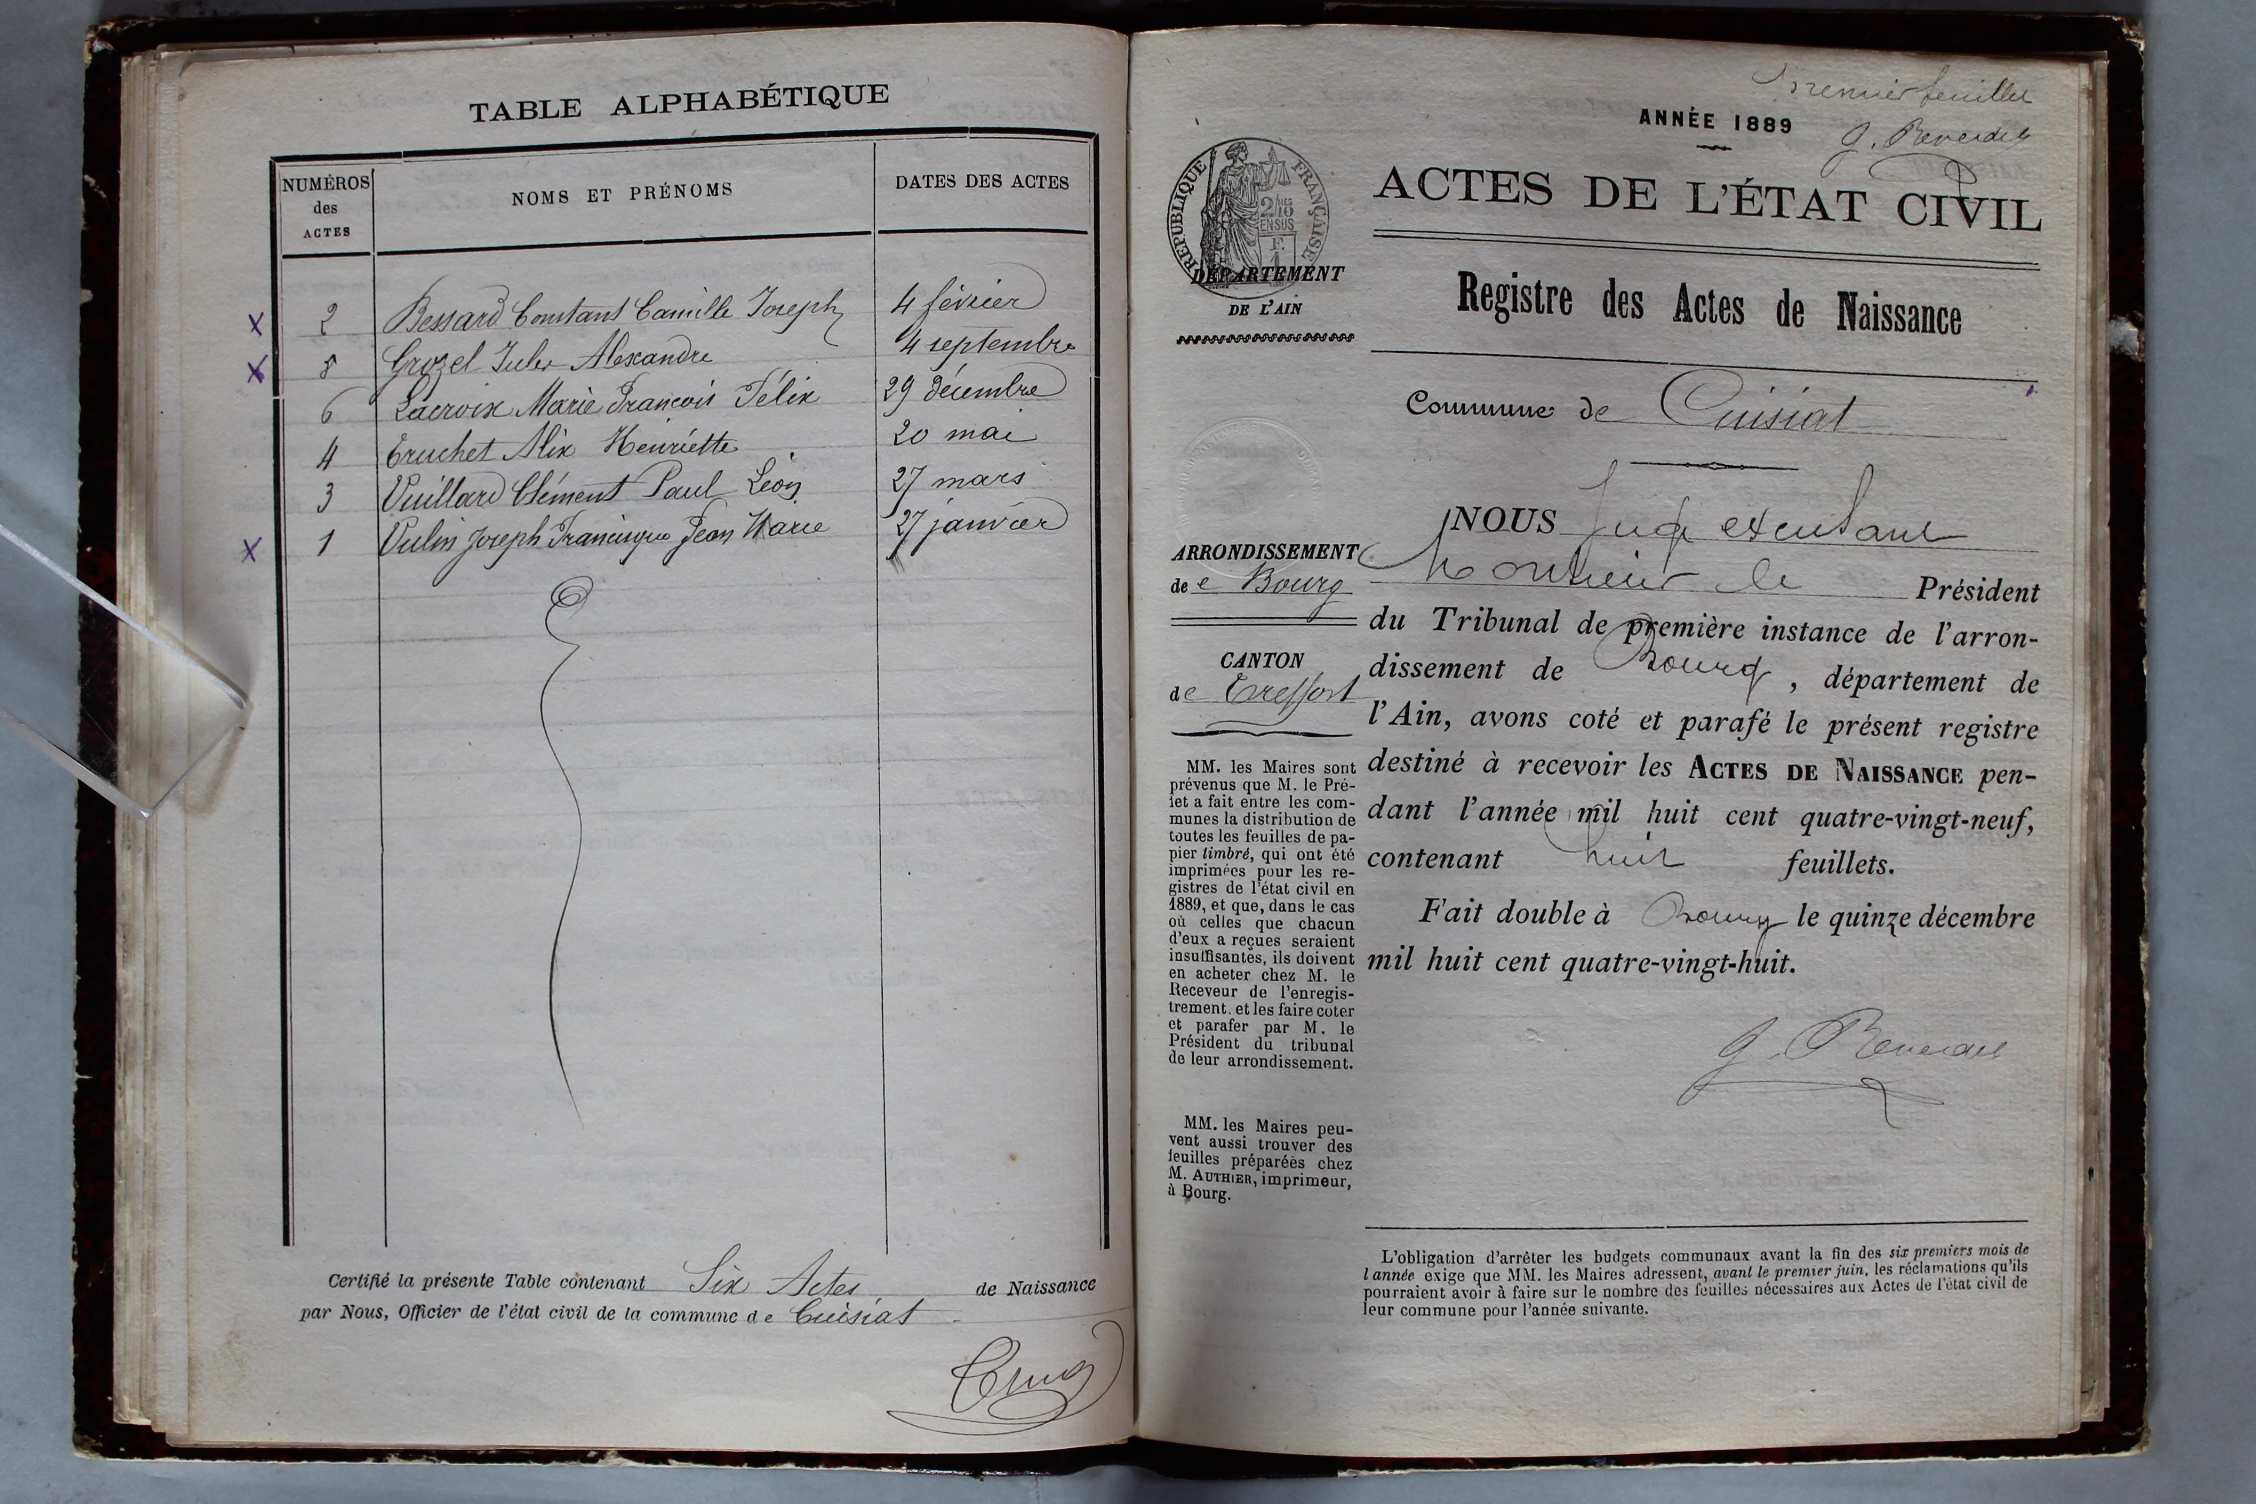 TABLE ALPHABÉTIQUE
NUMÉROS des ACTES
NOMS ET PRÉNOMS
DATES DES ACTES
x 2 Bessard Constant Camille Joseph 4 février
x 8 Grozel Jules Alexandre 4 septembre
6 Lacroix Marie François Félix 29 décembre
4 Truchet Alix Henriette 20 mai
3 Vuillard Clément Paul Léon 27 mars
x 1 Vulin Joseph Francisque Jean Marie 27 janvier
Certifié la présente Table contenant Six Actes de Naissance
par Nous, Officier de l'état civil de la commune de Cuisiat
Premier feuillet
ANNÉE 1889
G. Reverdel
ACTES DE L'ÉTAT CIVIL
RÉPUBLIQUE FRANÇAISE
DÉPARTEMENT
DE L'AIN
Registre des Actes de Naissance
Commune de Cuisiat
NOUS Juge
Monsieur le Président
du Tribunal de première instance de l'arron-
dissement de Bourg, département de
l'Ain, avons coté et parafé le présent registre
destiné à recevoir les ACTES DE NAISSANCE pen-
dant l'année mil huit cent quatre-vingt-neuf,
contenant huit feuillets.
Fait double à Bourg le quinze décembre
mil huit cent quatre-vingt-huit.
G. Reverdel
ARRONDISSEMENT
de Bourg
CANTON
de Treffort
MM. les Maires sont
prévenus que M. le Pré-
fet a fait entre les com-
munes la distribution de
toutes les feuilles de pa-
pier timbré, qui ont été
imprimées pour les re-
gistres de l'état civil en
1889, et que, dans le cas
où celles que chacun
d'eux a reçues seraient
insuffisantes, ils doivent
en acheter chez M. le
Receveur de l'enregis-
trement. et les faire coter
et parafer par M. le
Président du tribunal
de leur arrondissement.
MM. les Maires peu-
vent aussi trouver des
feuilles préparées chez
M. AUTHIER, imprimeur,
à Bourg.
L'obligation d'arrêter les budgets communaux avant la fin des six premiers mois de
l'année exige que MM. les Maires adressent, avant le premier juin, les réclamations qu'ils
pourraient avoir à faire sur le nombre des feuilles nécessaires aux Actes de l'état civil de
leur commune pour l'année suivante.